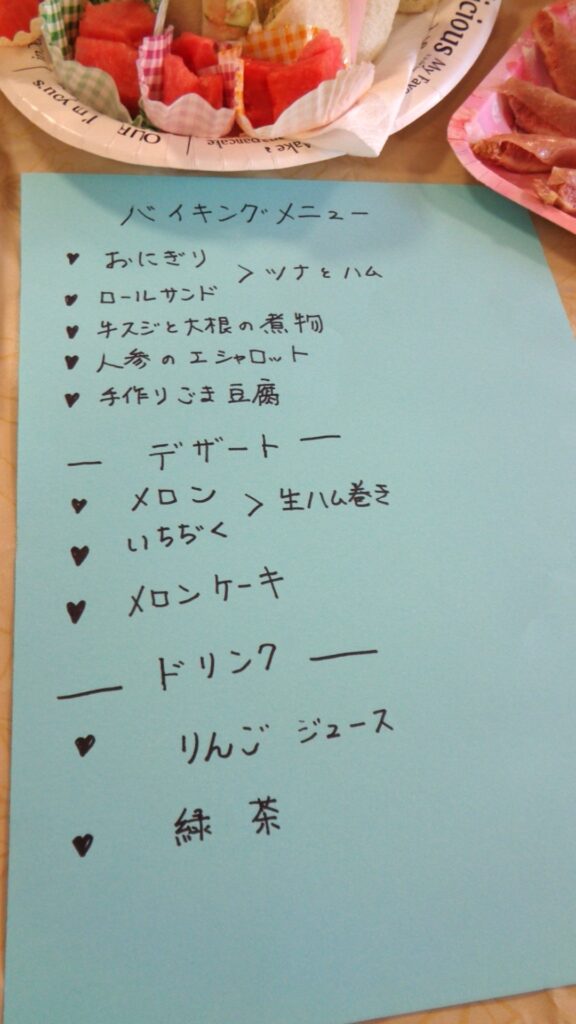 icious My Favo
Make a
pancake
OUR I'm yours
バイキングメニュー
♥ おにぎり
> ツナとハム
♥ ロールサンド
♥ 牛スジと大根の煮物
♥ 人参のエシャロット
♥ 手作りごま豆腐
— デザート —
♥ メロン > 生ハム巻き
♥ いちぢく
♥ メロンケーキ
— ドリンク —
♥ りんごジュース
♥ 緑茶